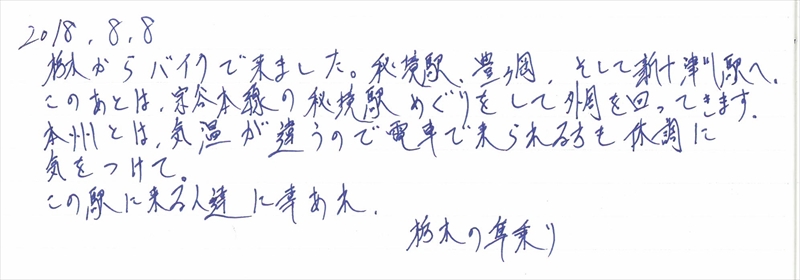 2018.8.8
栃木からバイクで来ました。秘境駅、豊ヶ岡、そして新十津川駅へ。
このあとは、宗谷本線の秘境駅めぐりをして外周を回ってきます。
本州とは、気温が違うので電車で来られる方も体調に
気をつけて。
この駅に来る人達に幸あれ。
栃木の隼乗り